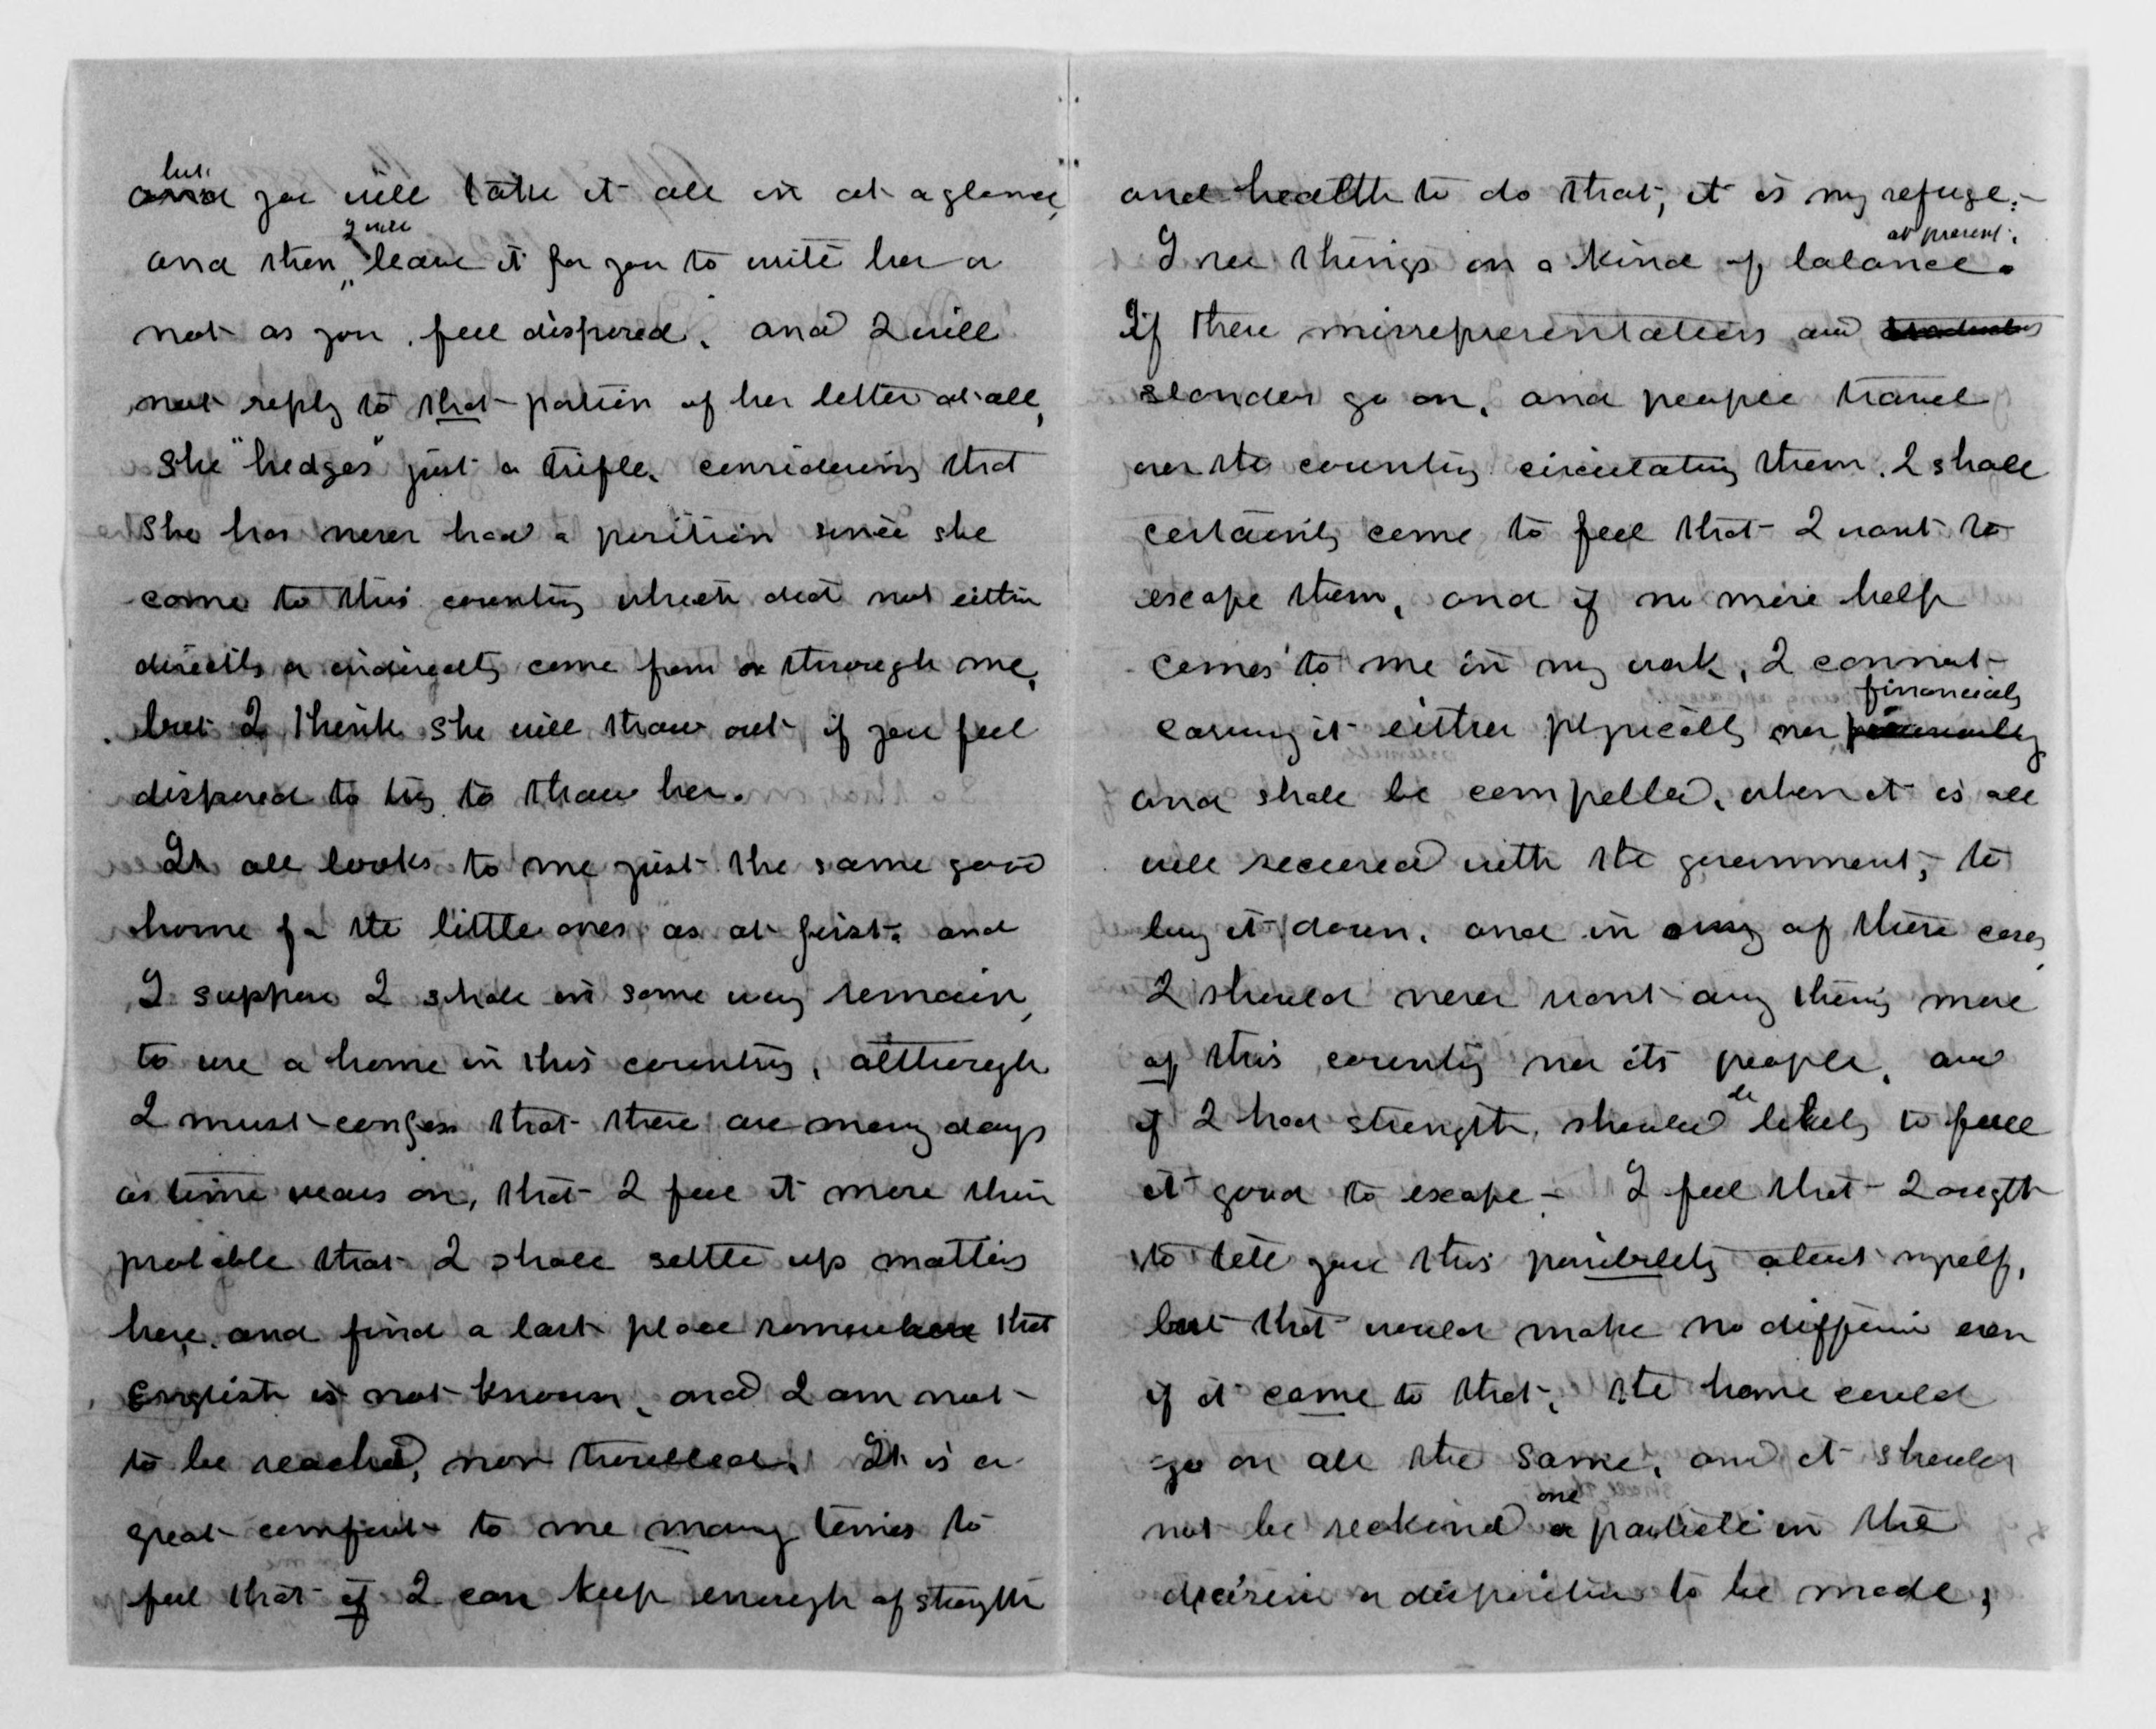 but
and you will take it all in at a glance,
I will
and then leave it for you to write her or
not as you feel disposed, and I will
not reply to that portion of her letter at all,
She "hedges" just a trifle, considering that
she has never had a position since she
came to this country which did not either
directly or indirectly come from or through me,
but I think she will thaw out if you feel
disposed to try to thaw her.
It all looks to me just the same good
home for the little ones, as at first, and
I suppose I shall in some way remain,
to use a home in this country, although
I must confess that there are many days
as time wears on, that I feel it more than
probable that I shall settle up matters
here, and find a last place somewhere that
English is not known, and I am not
to be reached, nor troubled. It is a
great comfort to me many times to
feel that if I can keep enough of strength
and health to do that, it is my refuge.-
at present.
I see things on a kind of balance.
If these misrepresentations and
slanders go on, and people travel
over the country circulating them, I shall
certainly come to feel that I want to
escape them, and if no more help
comes to me in my work, I cannot
financially
carry it either physically nor pecuniarily
and shall be compelled, when it is all
well secured with the government, to
lay it down, and in any of these cases,
I should never want any thing more
of this country nor its people, and
be
if I had strength, should likely to feel
it good to escape - I feel that I ougth
to tell you this possibility about myself,
but that would make no difference even
if it came to that, the home could
go on all the same, and it should
one
not be reckoned a particle in the
decision or disposition to be made,